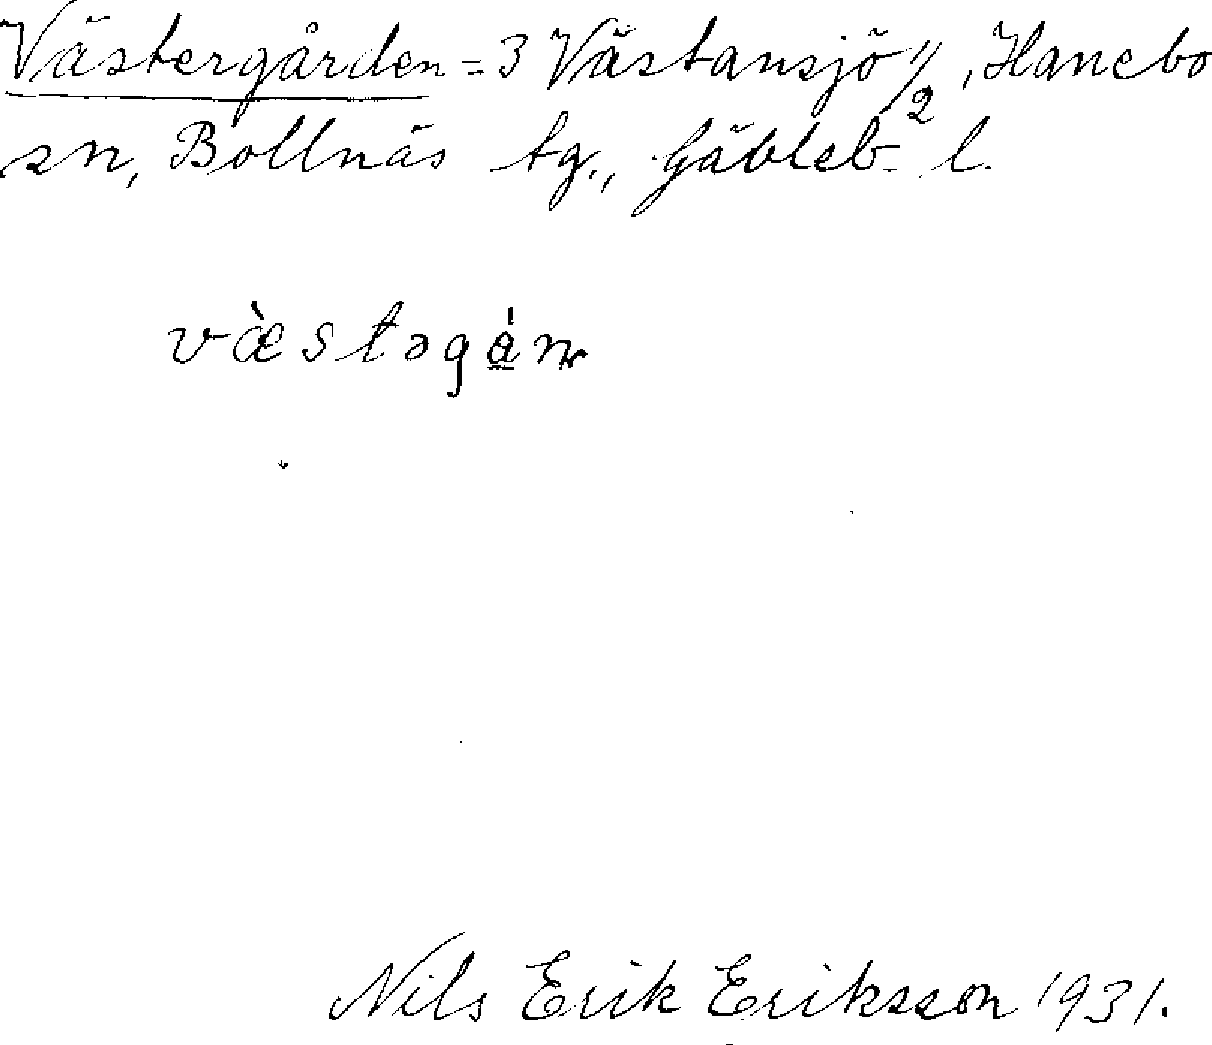 Västergården = 3 Västansjö 1/2, Hanebo
sn, Bollnäs tg., Gävleb. l.
væ̀stəgá̱n
Nils Erik Eriksson 1931.